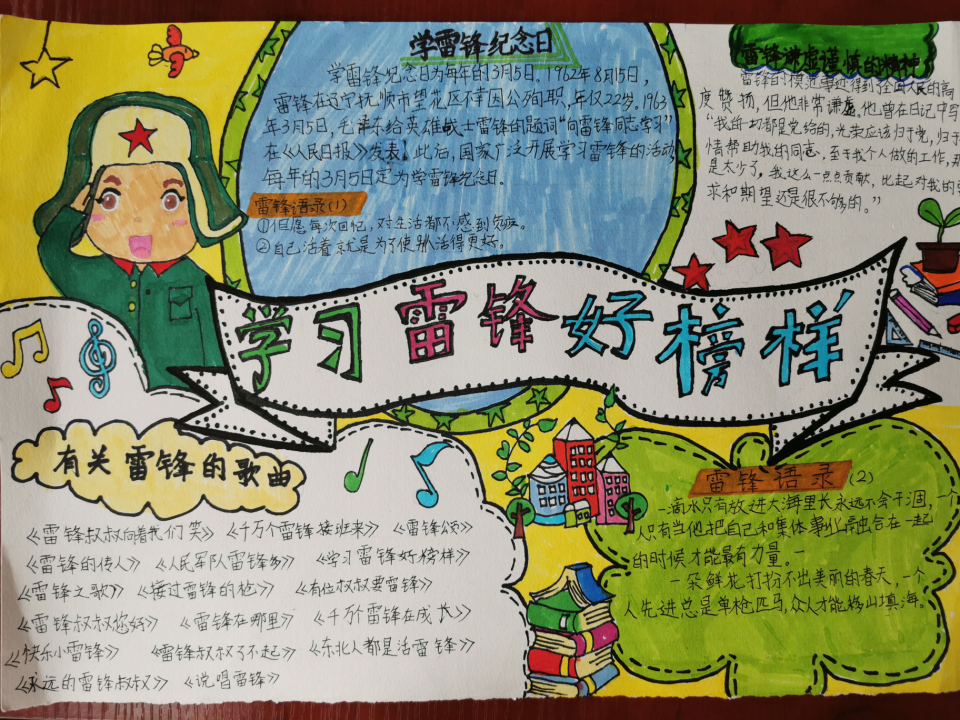 学雷锋纪念日
学雷锋纪念日为每年的3月5日。1962年8月15日，
雷锋在辽宁抚顺市望花区不幸因公殉职，年仅22岁。1963
年3月5日，毛泽东给英雄战士雷锋的题词“向雷锋同志学习”
在《人民日报》发表！此后，国家广泛开展学习雷锋的活动
每年的3月5日定为学雷锋纪念日。
雷锋语录(1)
①但愿每次回忆，对生活都不感到负疚。
②自己活着就是为了使别人活得更好。
雷锋谦虚谨慎的精神
雷锋的模范事迹得到全国人民的高
度赞扬，但他非常谦虚。他曾在日记中写
“我的一切都是党给的，光荣应该归于党，归于
情帮助我的同志，至于我个人做的工作，那
是太少了。我这么一点点贡献，比起对我的
求和期望还是很不够的。”
学习雷锋好榜样
有关雷锋的歌曲
《雷锋叔叔向着我们笑》 《千万个雷锋接班来》 《雷锋颂》
《雷锋的传人》 《人民军队雷锋多》 《学习雷锋好榜样》
《雷锋之歌》 《接过雷锋的枪》 《有位叔叔要雷锋》
《雷锋叔叔您好》 《雷锋在哪里》 《千万个雷锋在成长》
《快乐小雷锋》 《雷锋叔叔了不起》 《东北人都是活雷锋》
《永远的雷锋叔叔》 《说唱雷锋》
雷锋语录(2)
一滴水只有放进大海里长永远不会干涸，一个
人只有当他把自己和集体事业融合在一起
的时候才能最有力量。
一朵鲜花打扮不出美丽的春天，一个
人先进总是单枪匹马，众人才能移山填海。